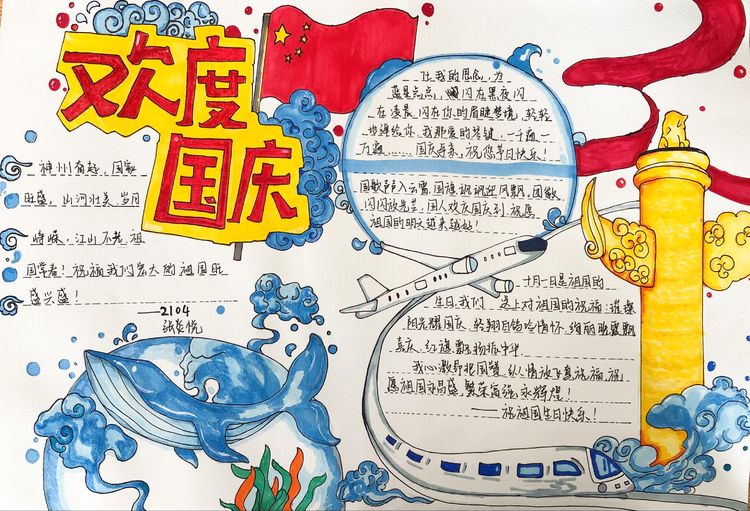 欢度
国庆
神州有起，国家
旺盛，山河壮美，岁月
峥嵘，江山不老，祖
国常春！祝福我们宏大的祖国旺
盛兴盛！
——2104
让我的思念，为
蓝星点点，闪在黑夜闪
在凌晨，闪在你的眉睫梦境，轻轻
也译给你，我那爱的琴键，一千遍
万遍……国庆再来，祝您节日快乐！
国歌声声入云霄，国旗飒飒迎风飘，国徽
闪闪放光芒，国人欢庆国庆到，祝愿
祖国的明天越来越好！
十月一日是祖国的
生日，我们送上对祖国的祝福：璀璨
阳光耀国庆，轻翔白鸽吟情怀，绚丽晚霞飘
喜庆，红旗飘扬振中华
我心激昂把国赞，纵人情放飞真祝福，祝
愿祖国永昌盛，繁荣富强，永辉煌！
——祝祖国生日快乐！